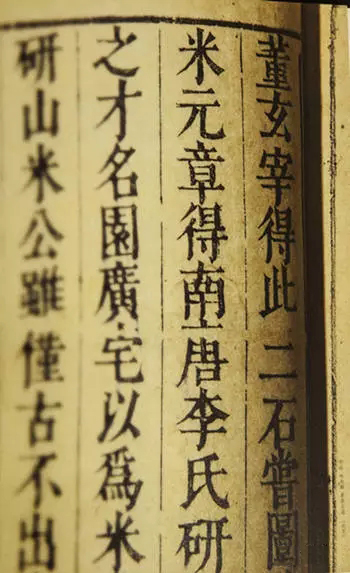 董玄宰得此二石嘗圖
米元章得南唐李氏研
之才名園廣宅以爲米
研山米公雖僅古不出